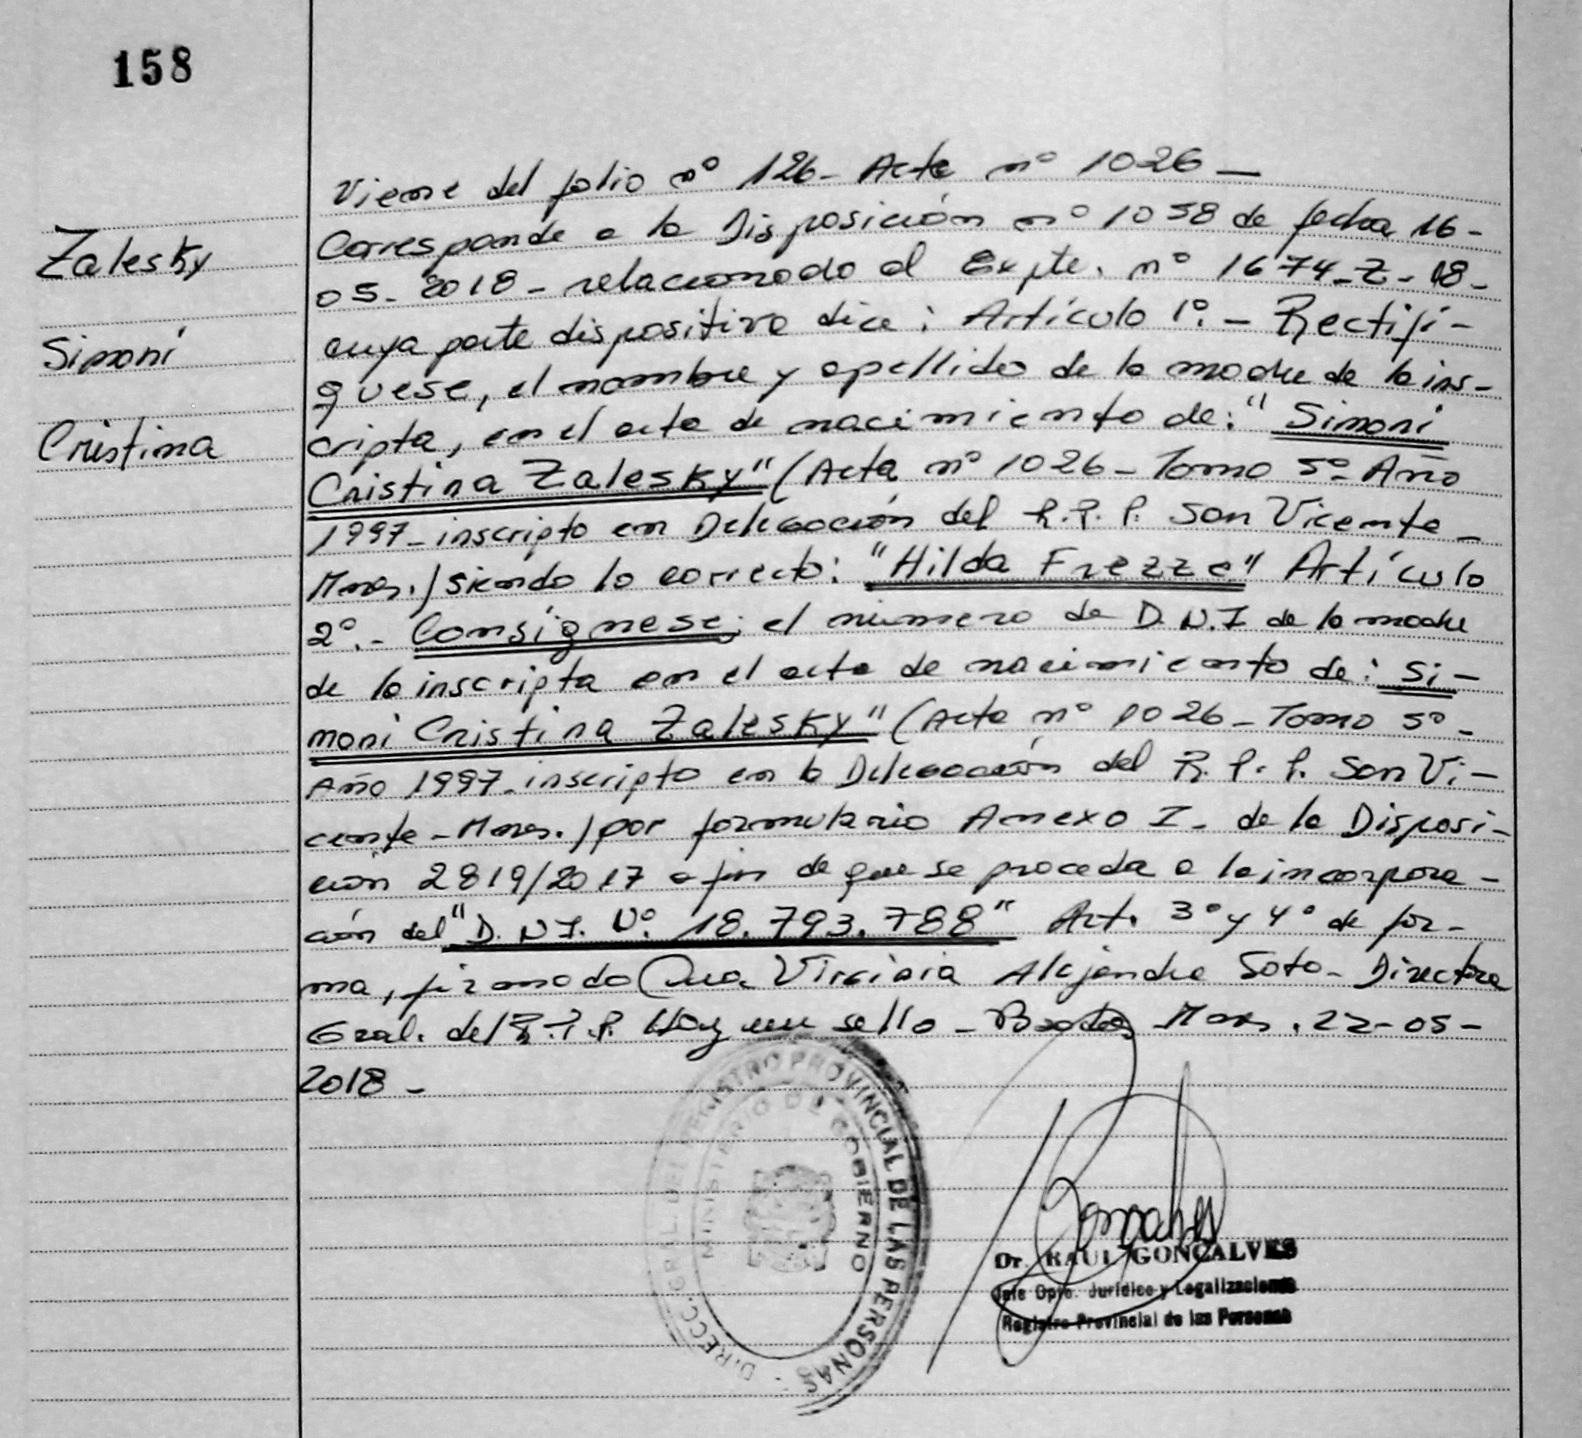 158
Zalesky
Simoni
Cristina
Viene del folio nº 126- Acta nº 1026 —
Corresponde a la Disposición nº 1058 de fecha 16-
05- 2018- relacionado al Expte. nº 1674-Z-18-
cuya parte dispositiva dice: Artículo 1º.- Rectifi-
quese, el nombre y apellido de la madre de la ins-
cripta, en el acta de nacimiento de: "Simoni
Cristina Zalesky" (Acta nº 1026- Tomo 5º- Año
1997- inscripta en Delegación del R.P.P. San Vicente-
Mnes.) siendo lo correcto: "Hilda Frezze" Artículo
2º.- Consignese; el número de D.N.I de la madre
de la inscripta en el acta de nacimiento de: Si-
moni Cristina Zalesky" (Acta nº 1026- Tomo 5º-
Año 1997- inscripta en la Delegación del R.P.P. San Vi-
cente- Mnes.) por formulario Anexo I- de la Disposi-
ción 2819/2017 a fin de que se proceda a la incorpora-
ción del "D.N.I. Nº. 18.793.788" Art. 3º y 4º de for-
ma, firmado Dra. Virginia Alejandra Soto- Directora
Gral. del R.P.P. Hay un sello- Mnes. 22-05-
2018-
DIRECC. GRAL. DEL REGISTRO PROVINCIAL DE LAS PERSONAS
MINISTERIO DE GOBIERNO
Dr. RAUL GONCALVES
Jefe Dpto. Jurídico y Legalizaciones
Registro Provincial de las Personas